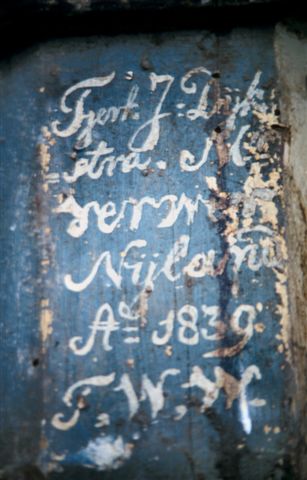 Tjerk J: Dijk
=stra. M
verw
Nijland
A° 1839.
T. W. M.